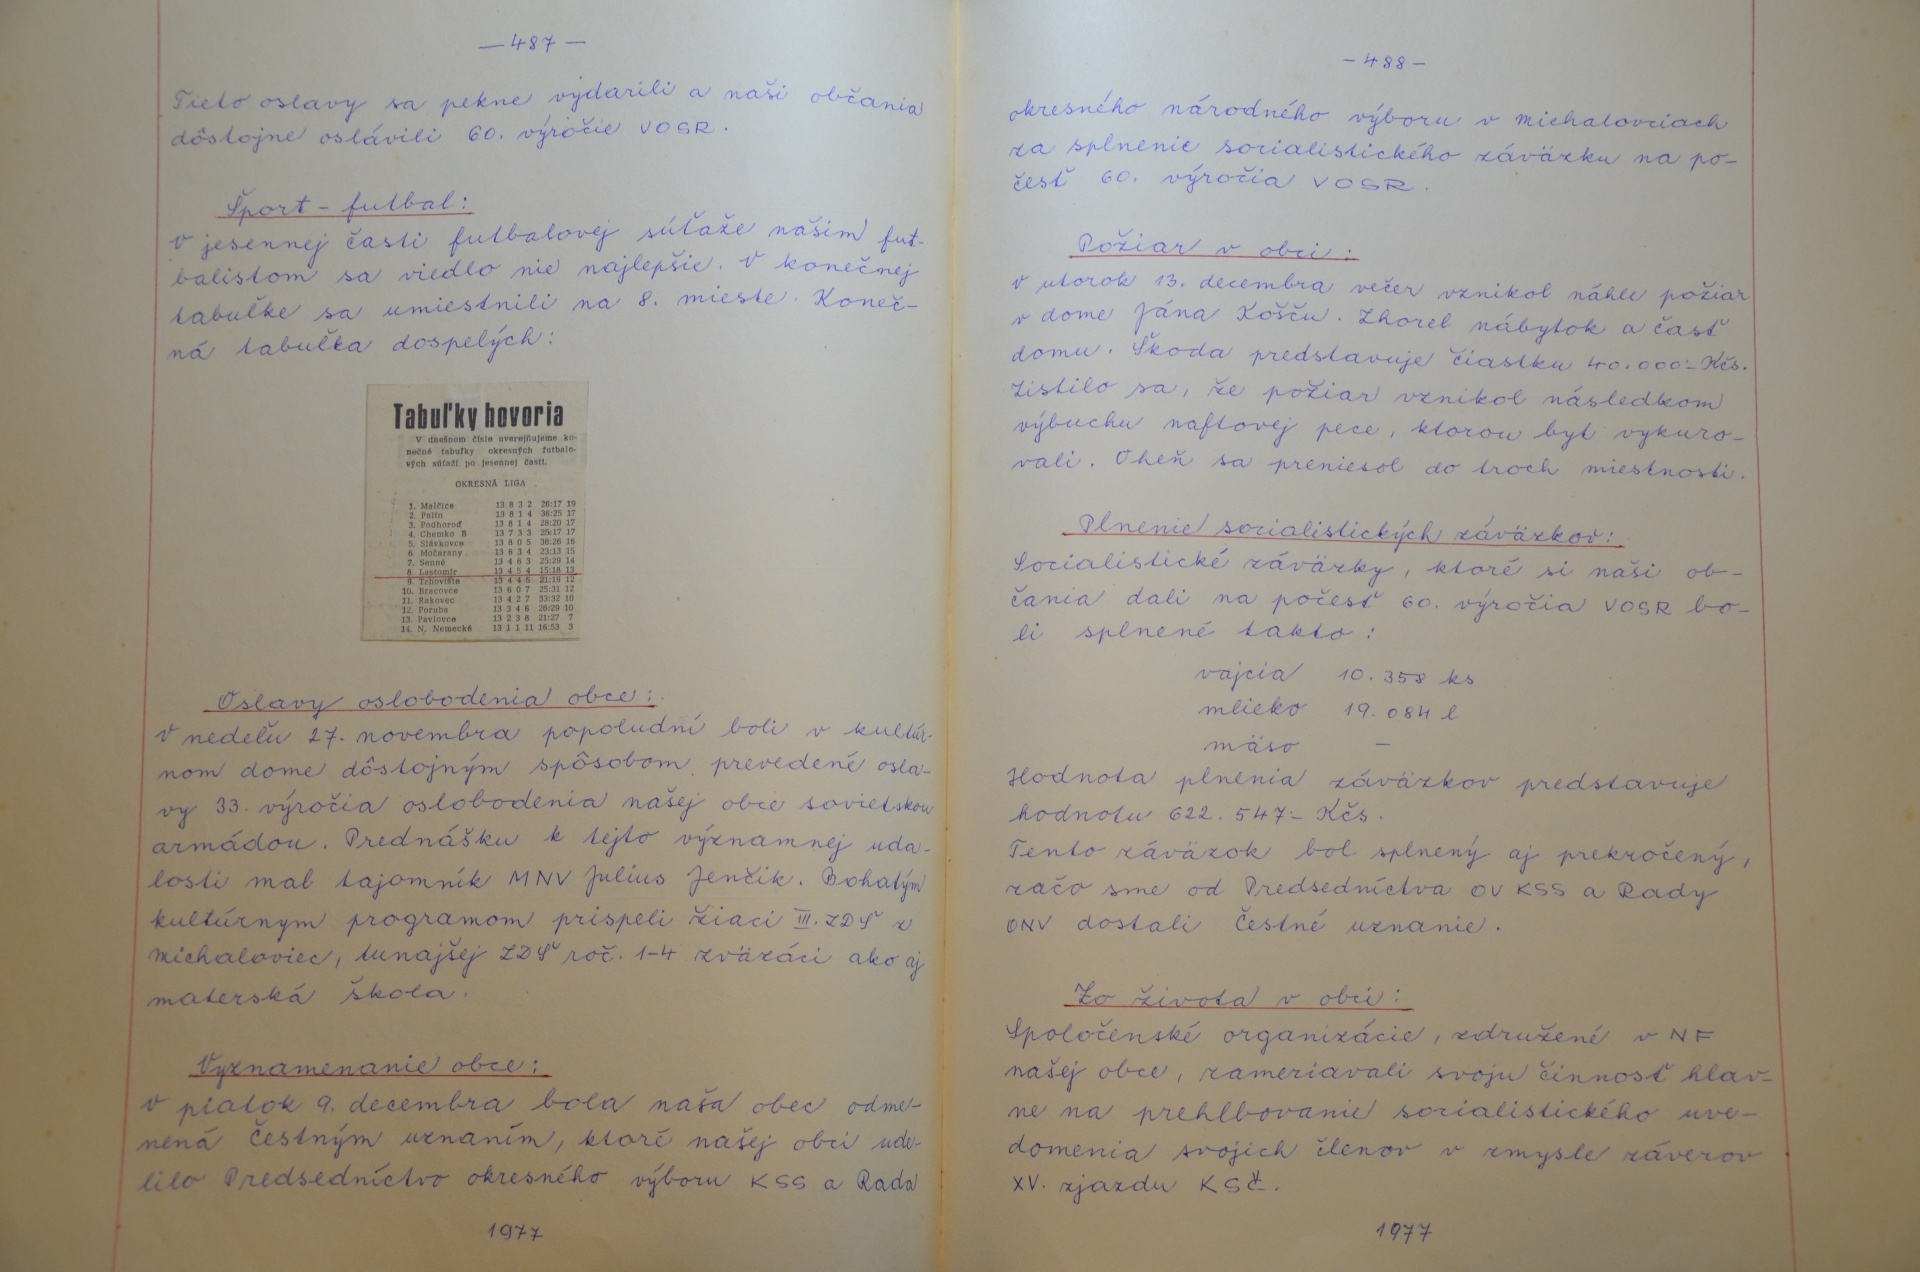 — 487 —
Tieto oslavy sa pekne vydarili a naši občania
dôstojne oslávili 60. výročie VOSR.
Šport - futbal:
V jesennej časti futbalovej súťaže našim fut-
balistom sa viedlo nie najlepšie. V konečnej
tabuľke sa umiestnili na 8. mieste. Koneč-
ná tabuľka dospelých:
Tabuľky hovoria
V dnešnom čísle uverejňujeme ko-
nečné tabuľky okresných futbalo-
vých súťaží po jesennej časti.
OKRESNÁ LIGA
1. Malčice 13 8 3 2 26:17 19
2. Palín 13 8 1 4 36:25 17
3. Podhoroď 13 8 1 4 28:20 17
4. Chemko B 13 7 3 3 25:17 17
5. Slávkovce 13 8 0 5 38:26 16
6. Močarany 13 6 3 4 23:13 15
7. Senné 13 4 6 3 25:29 14
8. Lastomír 13 4 5 4 15:18 13
9. Trhovište 13 4 4 5 21:19 12
10. Bracovce 13 6 0 7 25:31 12
11. Rakovec 13 4 2 7 33:32 10
12. Poruba 13 3 4 6 26:29 10
13. Pavlovce 13 2 3 8 21:27 7
14. N. Nemecké 13 1 1 11 16:53 3
Oslavy oslobodenia obce:
V nedeľu 27. novembra popoludní boli v kultúr-
nom dome dôstojným spôsobom prevedené osla-
vy 33. výročia oslobodenia našej obce sovietskou
armádou. Prednášku k tejto významnej uda-
losti mal tajomník MNV Július Jenčik. Bohatým
kultúrnym programom prispeli žiaci III. ZDŠ z
Michaloviec, tunajšej ZDŠ roč. 1-4 zväzáci ako aj
materská škola.
Vyznamenanie obce:
V piatok 9. decembra bola naša obec odme-
nená čestným uznaním, ktoré našej obci ude-
lilo Predsedníctvo okresného výboru KSS a Rada
1977
- 488 -
okresného národného výboru v Michalovciach
za splnenie socialistického záväzku na po-
česť 60. výročia VOSR.
Požiar v obci:
V utorok 13. decembra večer vznikol náhle požiar
v dome Jána Košču. Zhorel nábytok a časť
domu. Škoda predstavuje čiastku 40.000.- Kčs.
Zistilo sa, že požiar vznikol následkom
výbuchu naftovej pece, ktorou byt vykuro-
vali. Oheň sa preniesol do troch miestnosti.
Plnenie socialistických záväzkov:
Socialistické záväzky, ktoré si naši ob-
čania dali na počesť 60. výročia VOSR bo-
li splnené takto:
vajcia 10.358 ks
mlieko 19.084 l
mäso -
Hodnota plnenia záväzkov predstavuje
hodnotu 622.547- Kčs.
Tento záväzok bol splnený aj prekročený,
začo sme od Predsedníctva OV KSS a Rady
ONV dostali čestné uznanie.
Zo života v obci:
Spoločenské organizácie, združené v NF
našej obce, zameriavali svoju činnosť hlav-
ne na prehlbovanie socialistického uve-
domenia svojich členov v zmysle záverov
XV. zjazdu KSČ.
1977